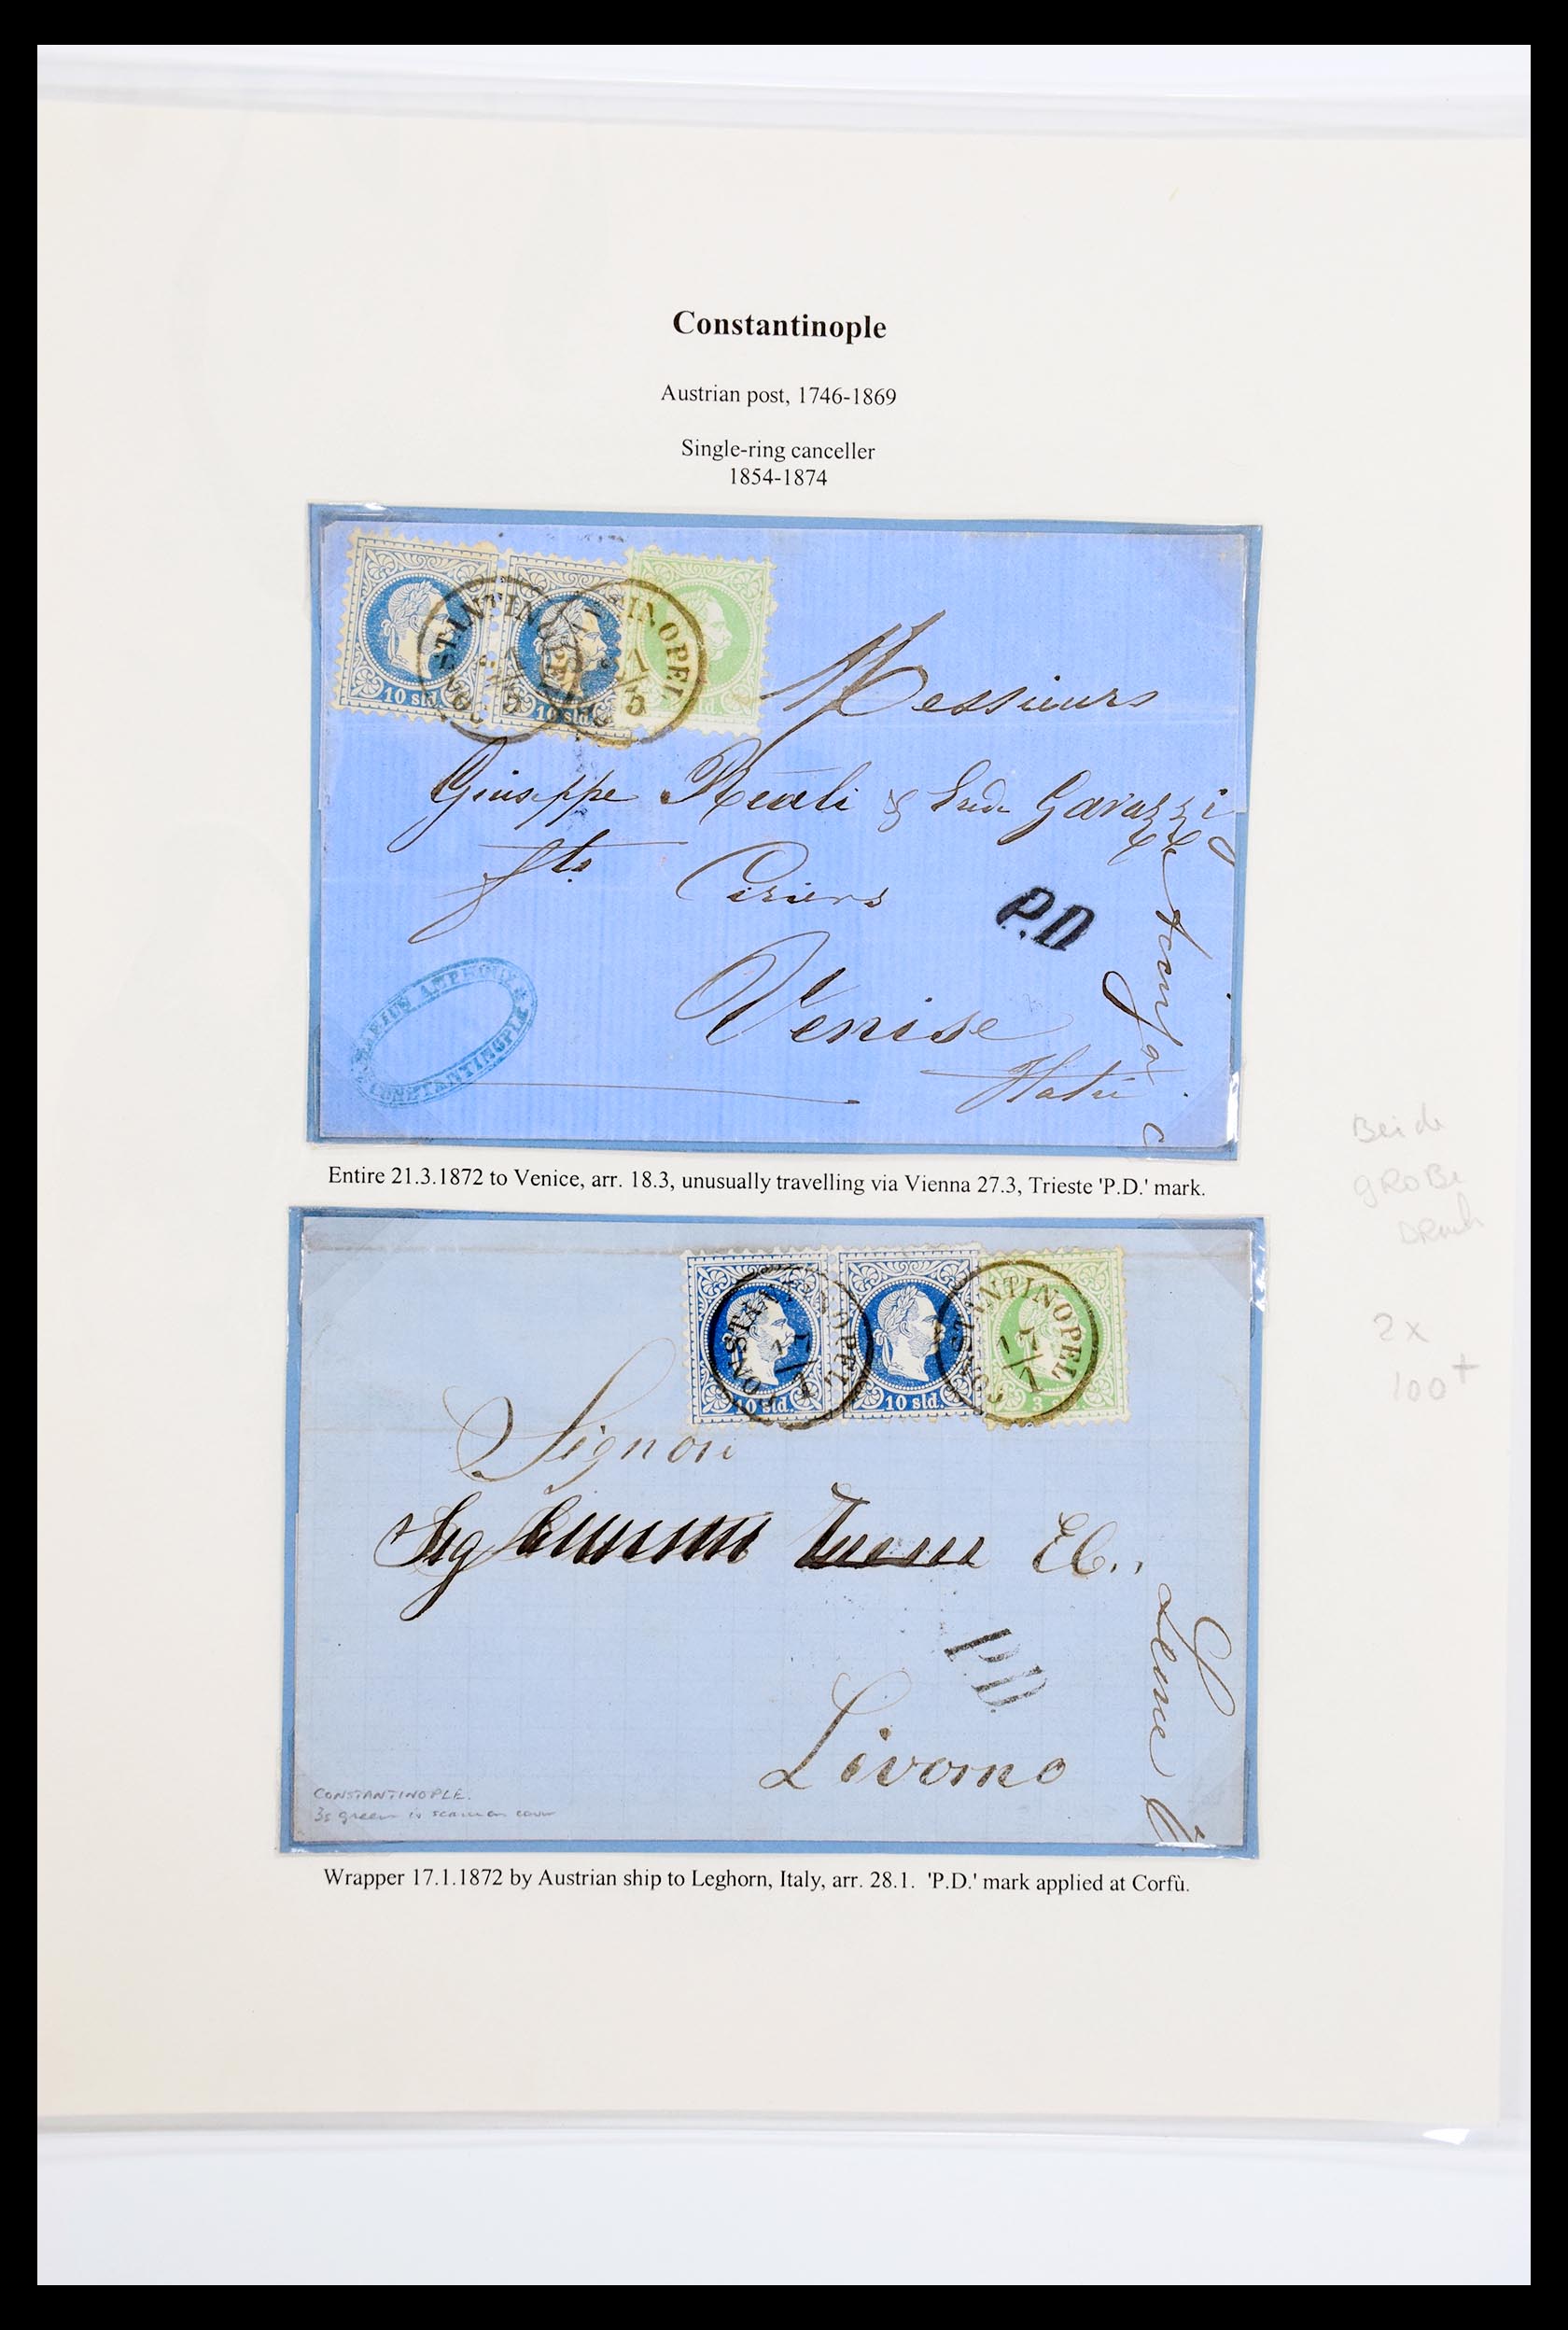 Constantinople
Austrian post, 1746-1869
Single-ring canceller
1854-1874
10 sld.
10 sld.
STANTINOPEL
TINOPEL
21
3
Messieurs
Giuseppe Reali & Gavazzi
Venise
P.D
CONSTANTINOPLE
Entire 21.3.1872 to Venice, arr. 18.3, unusually travelling via Vienna 27.3, Trieste 'P.D.' mark.
10 sld.
10 sld.
3
CONSTANTINOPEL
17
1
CONSTANTINOPEL
17
1
Signori
P.D.
Livorno
CONSTANTINOPLE.
3s green is scarce on cover
Wrapper 17.1.1872 by Austrian ship to Leghorn, Italy, arr. 28.1. 'P.D.' mark applied at Corfù.
Beide
gROBE
DRuck
2x
100+